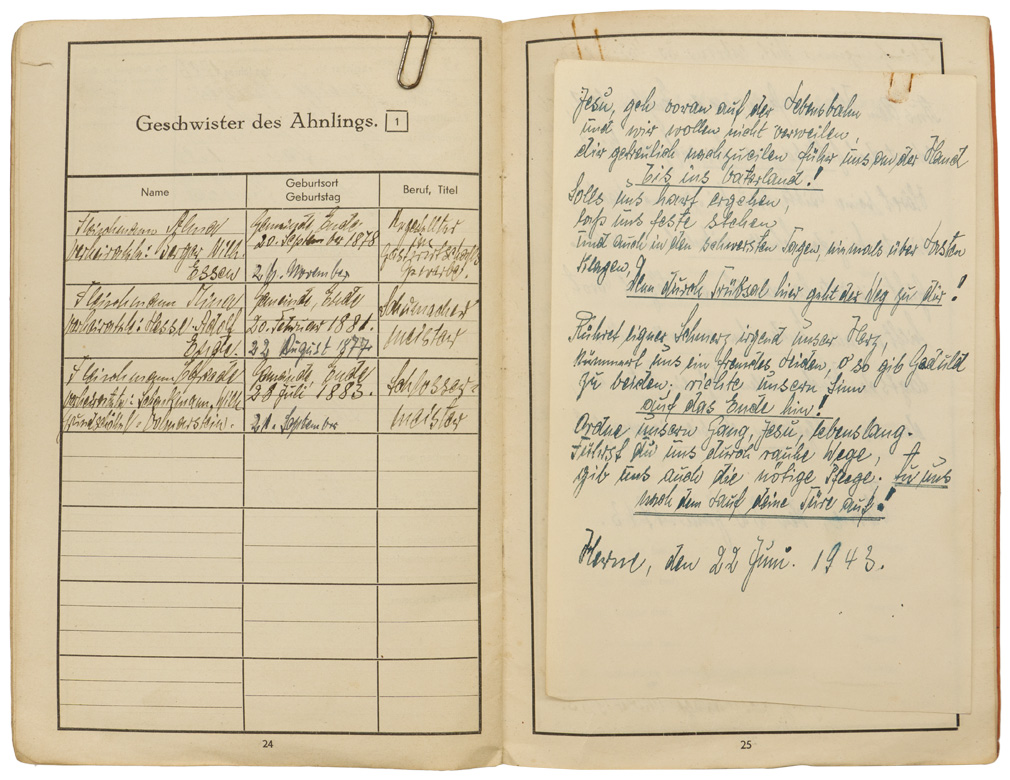 Geschwister des Ahnlings. 1
Name
Geburtsort
Geburtstag
Beruf, Titel
Fleischmann
verheiratet: Berger Wilh.
Essen
Gemeinde, Ende
20. September 1878
24. November
Angestellter
Gewerbet.
Fleischmann Mina
verheiratet: Adolf
Gemeinde, Ende
20. Februar 1881.
22 August 1877
meister
Fleischmann
verheiratet: Wilh.
Gemeinde, Ende
28 Juli 1883.
21. September
Schlosser-
meister
24
Jesu, geh voran auf der Lebensbahn
und wir wollen nicht verweilen,
dir getreulich nachzueilen führ uns an der Hand
bis ins Vaterland!
Solls uns hart ergehen,
laß uns feste stehen
und auch in den schwersten Tagen, niemals über Lasten
klagen,
denn durch Trübsal hier geht der Weg zu dir!
Rühret eigner Schmerz irgend unser Herz,
kümmert uns ein fremdes Leiden, o so gib Geduld
zu beiden; richte unsern Sinn
auf das Ende hin!
Ordne unsern Gang, Jesu, lebenslang.
Führst du uns durch rauhe Wege,
gib uns auch die nötige Pflege. tu uns
nach dem Lauf deine Türe auf!
Herne, den 22 Juni. 1943.
25